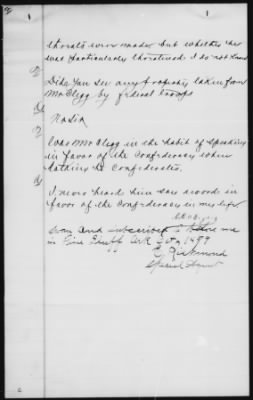 threats were made but whether he
was particularly threatened I do not know
Did you see any property taken from
Mr Clegg by federal troops
No sir
Was Mr Clegg in the habit of speaking
in favor of the Confederacy when
talking to Confederates
I never heard him say a word in
favor of the Confederacy in my life
Sworn and subscribed before me
in Pine Bluff Ark
Richmond
Special